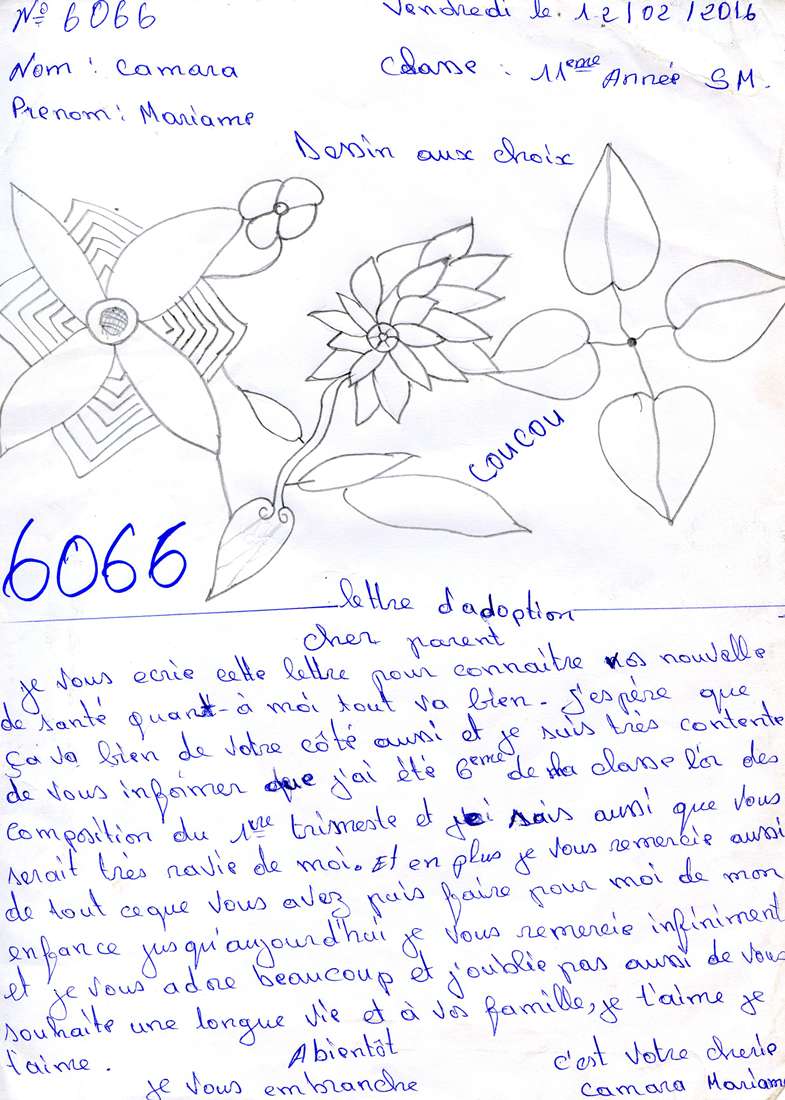 N° 6066
Vendredi le 12/02/2016
Nom : Camara
Classe : 11eme Année SM.
Prenom : Mariame
Dessin aux choix
coucou
6066
lettre d'adoption
cher parent
je vous ecrie cette lettre pour connaitre vos nouvelle
de santé quant-à moi tout va bien. J'espére que
ça va bien de votre côté aussi et je suis très contente
de vous informer que j'ai été 6eme de ma classe l'or des
composition du 1ere trimeste et je sais aussi que vous
serait très ravie de moi. Et en plus je vous remercie aussi
de tout ceque vous avez puis faire pour moi de mon
enfance jusqu'aujourd'hui je vous remercie infiniment
et je vous adore beaucoup et j'oublie pas aussi de vous
souhaite une longue vie et à vos famille, je t'aime je
t'aime.
Abientôt
c'est votre cherie
je vous embranche
Camara Mariame